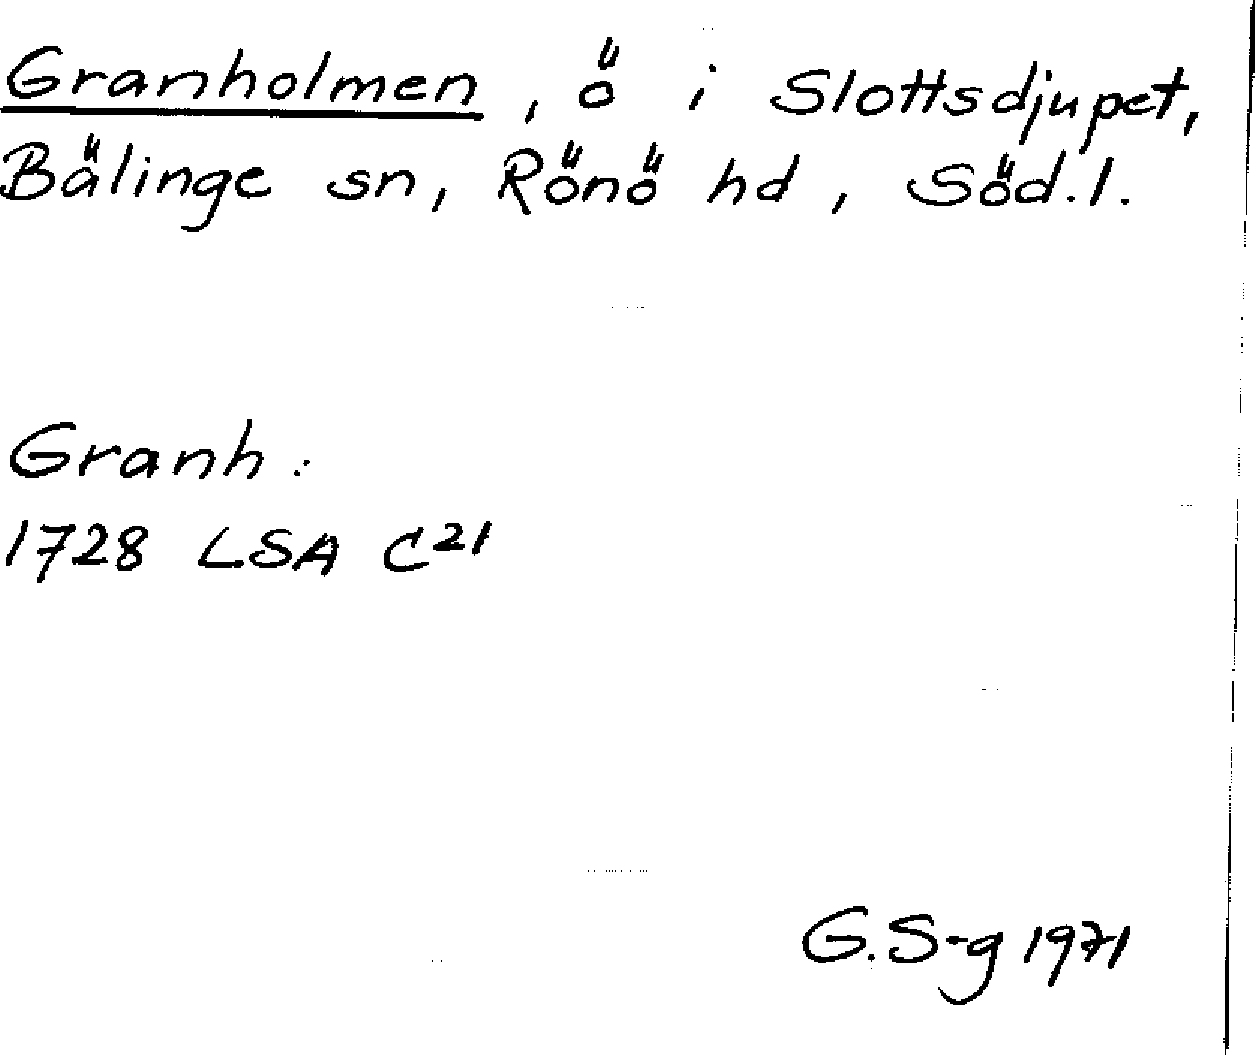 Granholmen, ö i Slottsdjupet,
Bälinge sn, Rönö hd, Söd.l.
Granh:
1728 LSA C21
G.S-g 1971